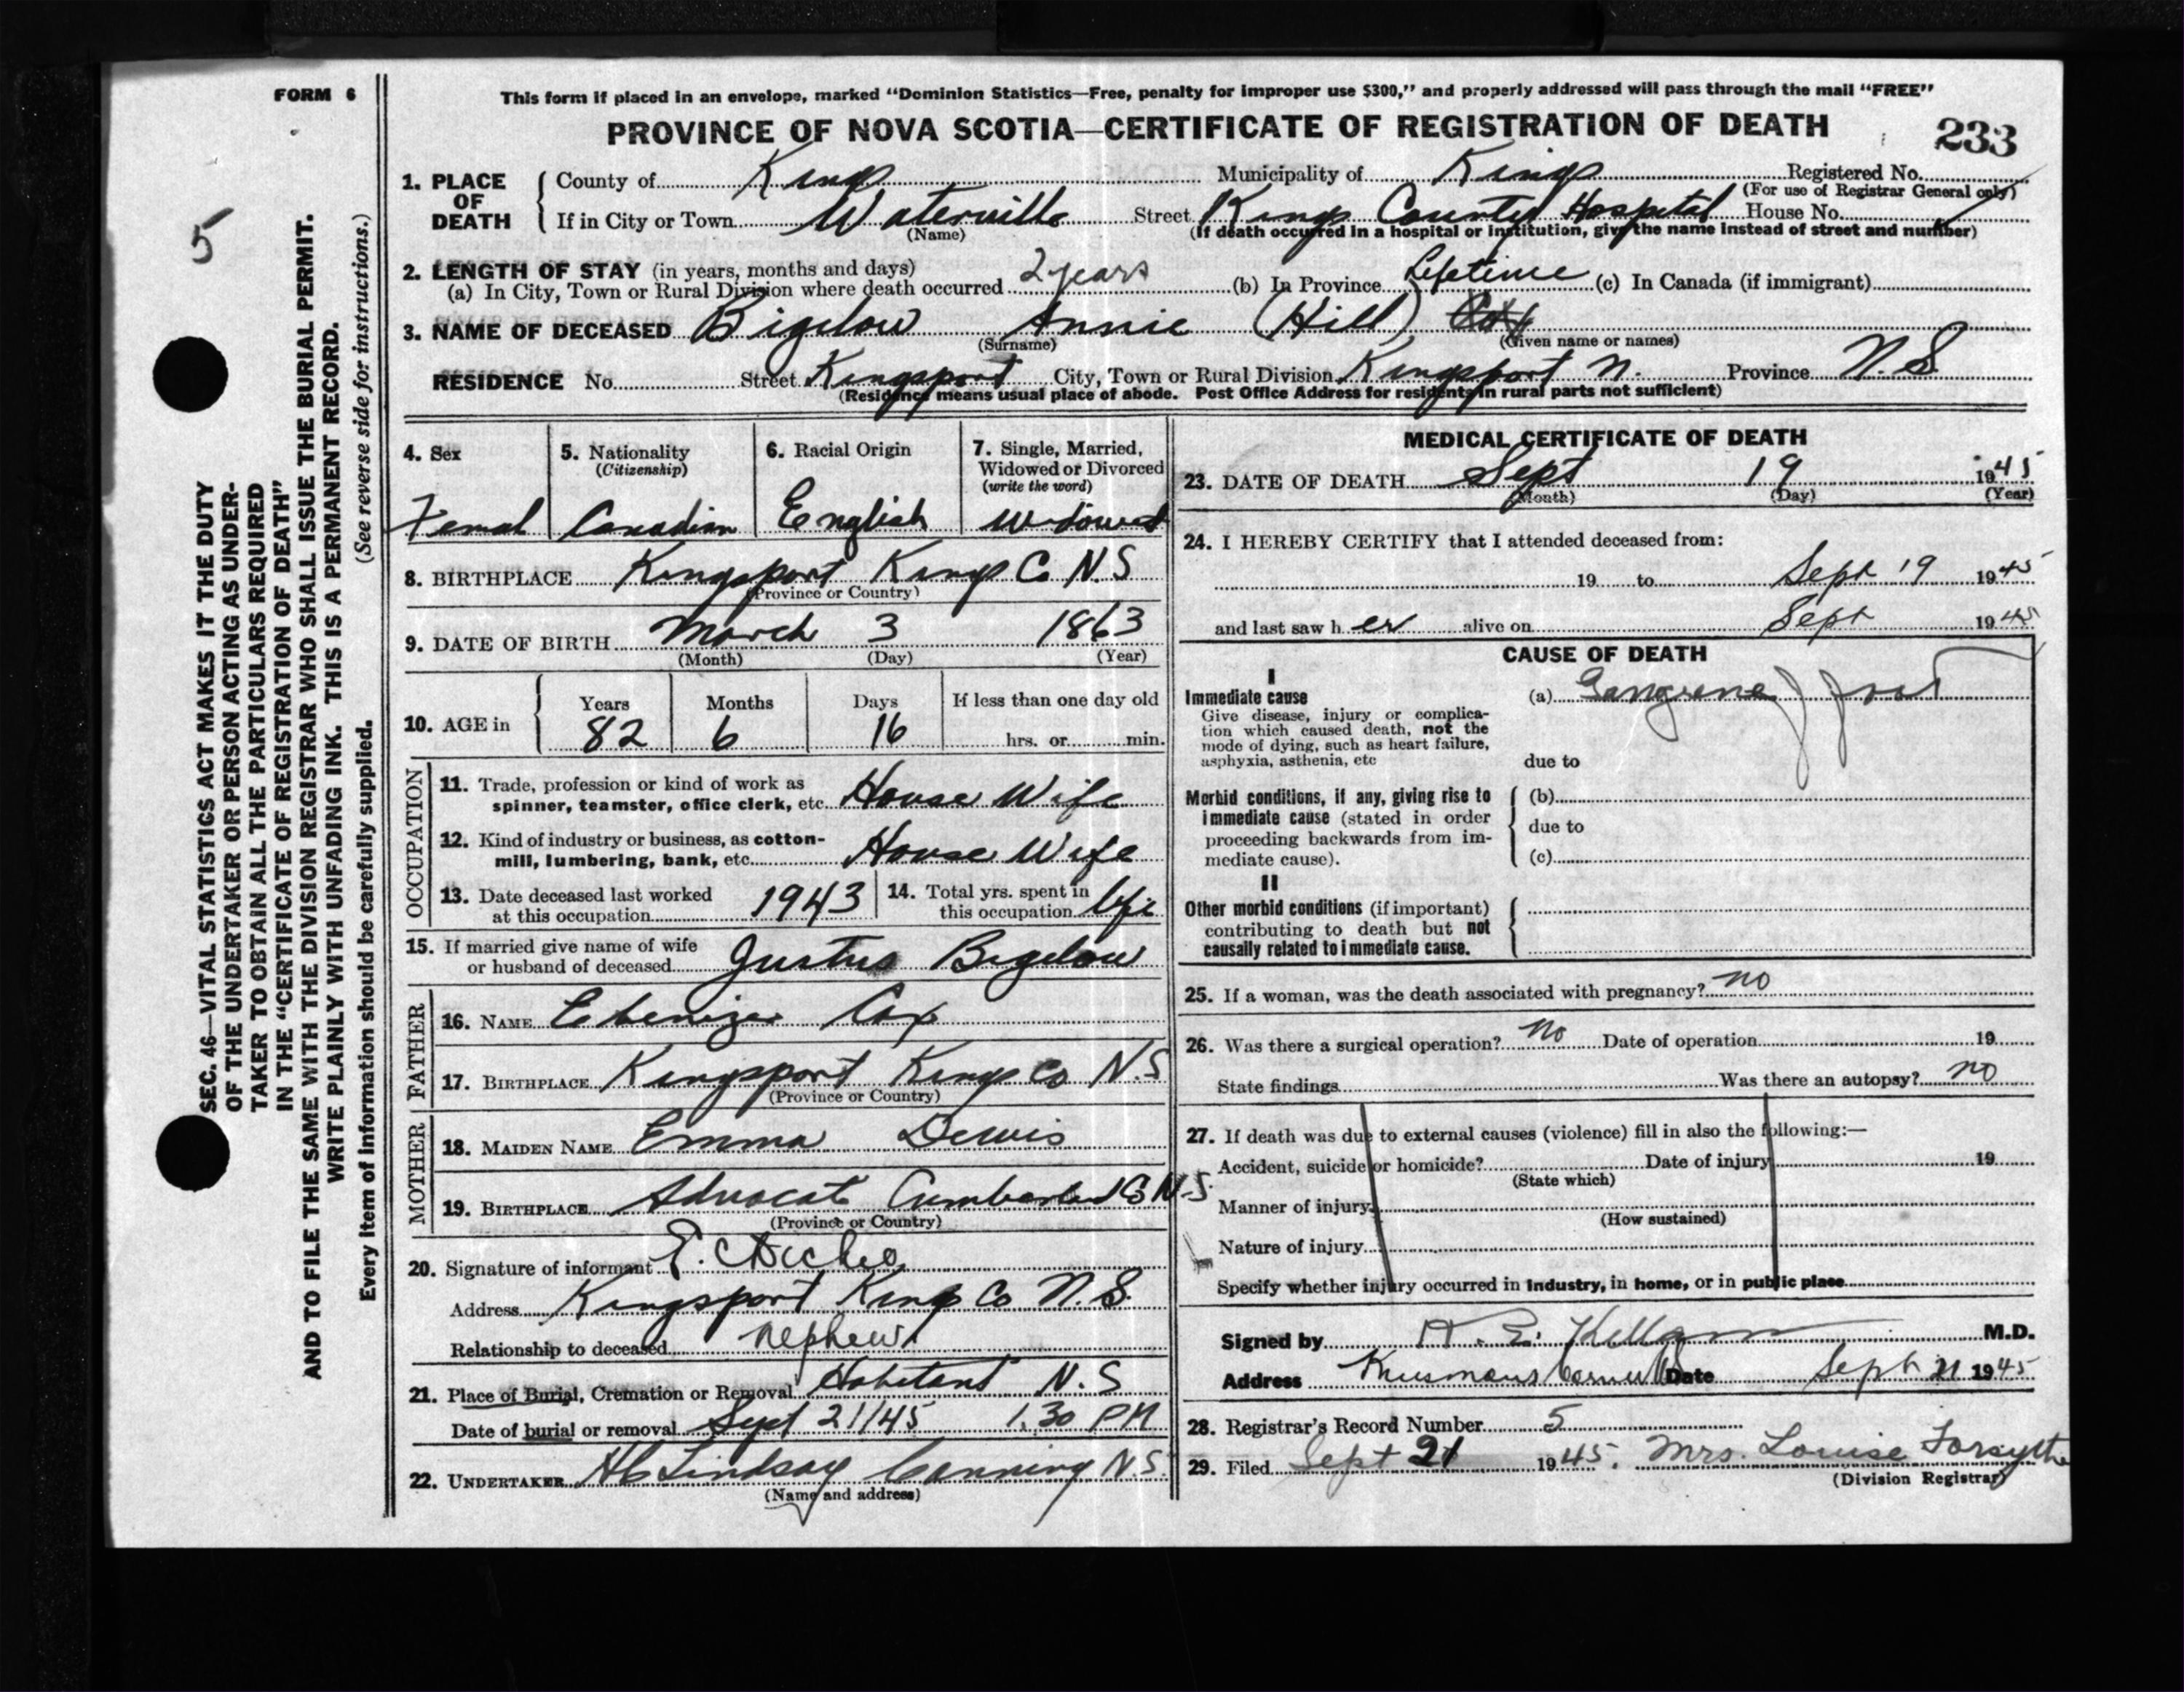 FORM 6
This form if placed in an envelope, marked "Dominion Statistics—Free, penalty for improper use $300," and properly addressed will pass through the mail "FREE"
PROVINCE OF NOVA SCOTIA—CERTIFICATE OF REGISTRATION OF DEATH
233
5
SEC. 46—VITAL STATISTICS ACT MAKES IT THE DUTY
OF THE UNDERTAKER OR PERSON ACTING AS UNDER-
TAKER TO OBTAIN ALL THE PARTICULARS REQUIRED
IN THE "CERTIFICATE OF REGISTRATION OF DEATH"
AND TO FILE THE SAME WITH THE DIVISION REGISTRAR WHO SHALL ISSUE THE BURIAL PERMIT.
WRITE PLAINLY WITH UNFADING INK. THIS IS A PERMANENT RECORD.
Every item of information should be carefully supplied. (See reverse side for instructions.)
1. PLACE OF DEATH
County of Kings Municipality of Kings Registered No.
(For use of Registrar General only)
If in City or Town Waterville Street Kings County Hospital House No.
(Name) (If death occurred in a hospital or institution, give the name instead of street and number)
2. LENGTH OF STAY (in years, months and days)
(a) In City, Town or Rural Division where death occurred 2 years (b) In Province Lifetime (c) In Canada (if immigrant)
3. NAME OF DECEASED Bigelow Annie (Hill) Cox
(Surname) (Given name or names)
RESIDENCE No. Street Kingsport City, Town or Rural Division Kingsport N. Province N.S.
(Residence means usual place of abode. Post Office Address for residents in rural parts not sufficient)
4. Sex
Femal
5. Nationality
(Citizenship)
Canadian
6. Racial Origin
English
7. Single, Married,
Widowed or Divorced
(write the word)
Widowed
8. BIRTHPLACE Kingsport Kings Co N.S
(Province or Country)
9. DATE OF BIRTH March 3 1863
(Month) (Day) (Year)
10. AGE in
Years Months Days If less than one day old
82 6 16 hrs. or min.
OCCUPATION
11. Trade, profession or kind of work as
spinner, teamster, office clerk, etc. House Wife
12. Kind of industry or business, as cotton-
mill, lumbering, bank, etc. House Wife
13. Date deceased last worked
at this occupation 1943
14. Total yrs. spent in
this occupation life
15. If married give name of wife
or husband of deceased Justus Bigelow
FATHER
16. NAME Ebenizer Cox
17. BIRTHPLACE Kingsport Kings Co N.S
(Province or Country)
MOTHER
18. MAIDEN NAME Emma Dewis
19. BIRTHPLACE Advocate Cumberland Co N.S.
(Province or Country)
20. Signature of informant E.
Address Kingsport Kings Co N.S.
Relationship to deceased nephew
21. Place of Burial, Cremation or Removal Habitant N.S
Date of burial or removal Sept 21/45 1.30 PM
22. UNDERTAKER HC Lindsay Canning N.S.
(Name and address)
MEDICAL CERTIFICATE OF DEATH
23. DATE OF DEATH Sept 19 1945
(Month) (Day) (Year)
24. I HEREBY CERTIFY that I attended deceased from:
19 to Sept 19 1945
and last saw h er alive on Sept 1945
CAUSE OF DEATH
I
Immediate cause
Give disease, injury or complica-
tion which caused death, not the
mode of dying, such as heart failure,
asphyxia, asthenia, etc
(a) Gangrene of foot
due to
Morbid conditions, if any, giving rise to
immediate cause (stated in order
proceeding backwards from im-
mediate cause).
(b)
due to
(c)
II
Other morbid conditions (if important)
contributing to death but not
causally related to immediate cause.
25. If a woman, was the death associated with pregnancy? no
26. Was there a surgical operation? no Date of operation 19
State findings Was there an autopsy? no
27. If death was due to external causes (violence) fill in also the following:—
Accident, suicide or homicide? Date of injury 19
(State which)
Manner of injury
(How sustained)
Nature of injury
Specify whether injury occurred in industry, in home, or in public place
Signed by Killam M.D.
Address Date Sept 21 1945
28. Registrar's Record Number 5
29. Filed Sept 21 1945. Mrs. Louise Forsythe
(Division Registrar)